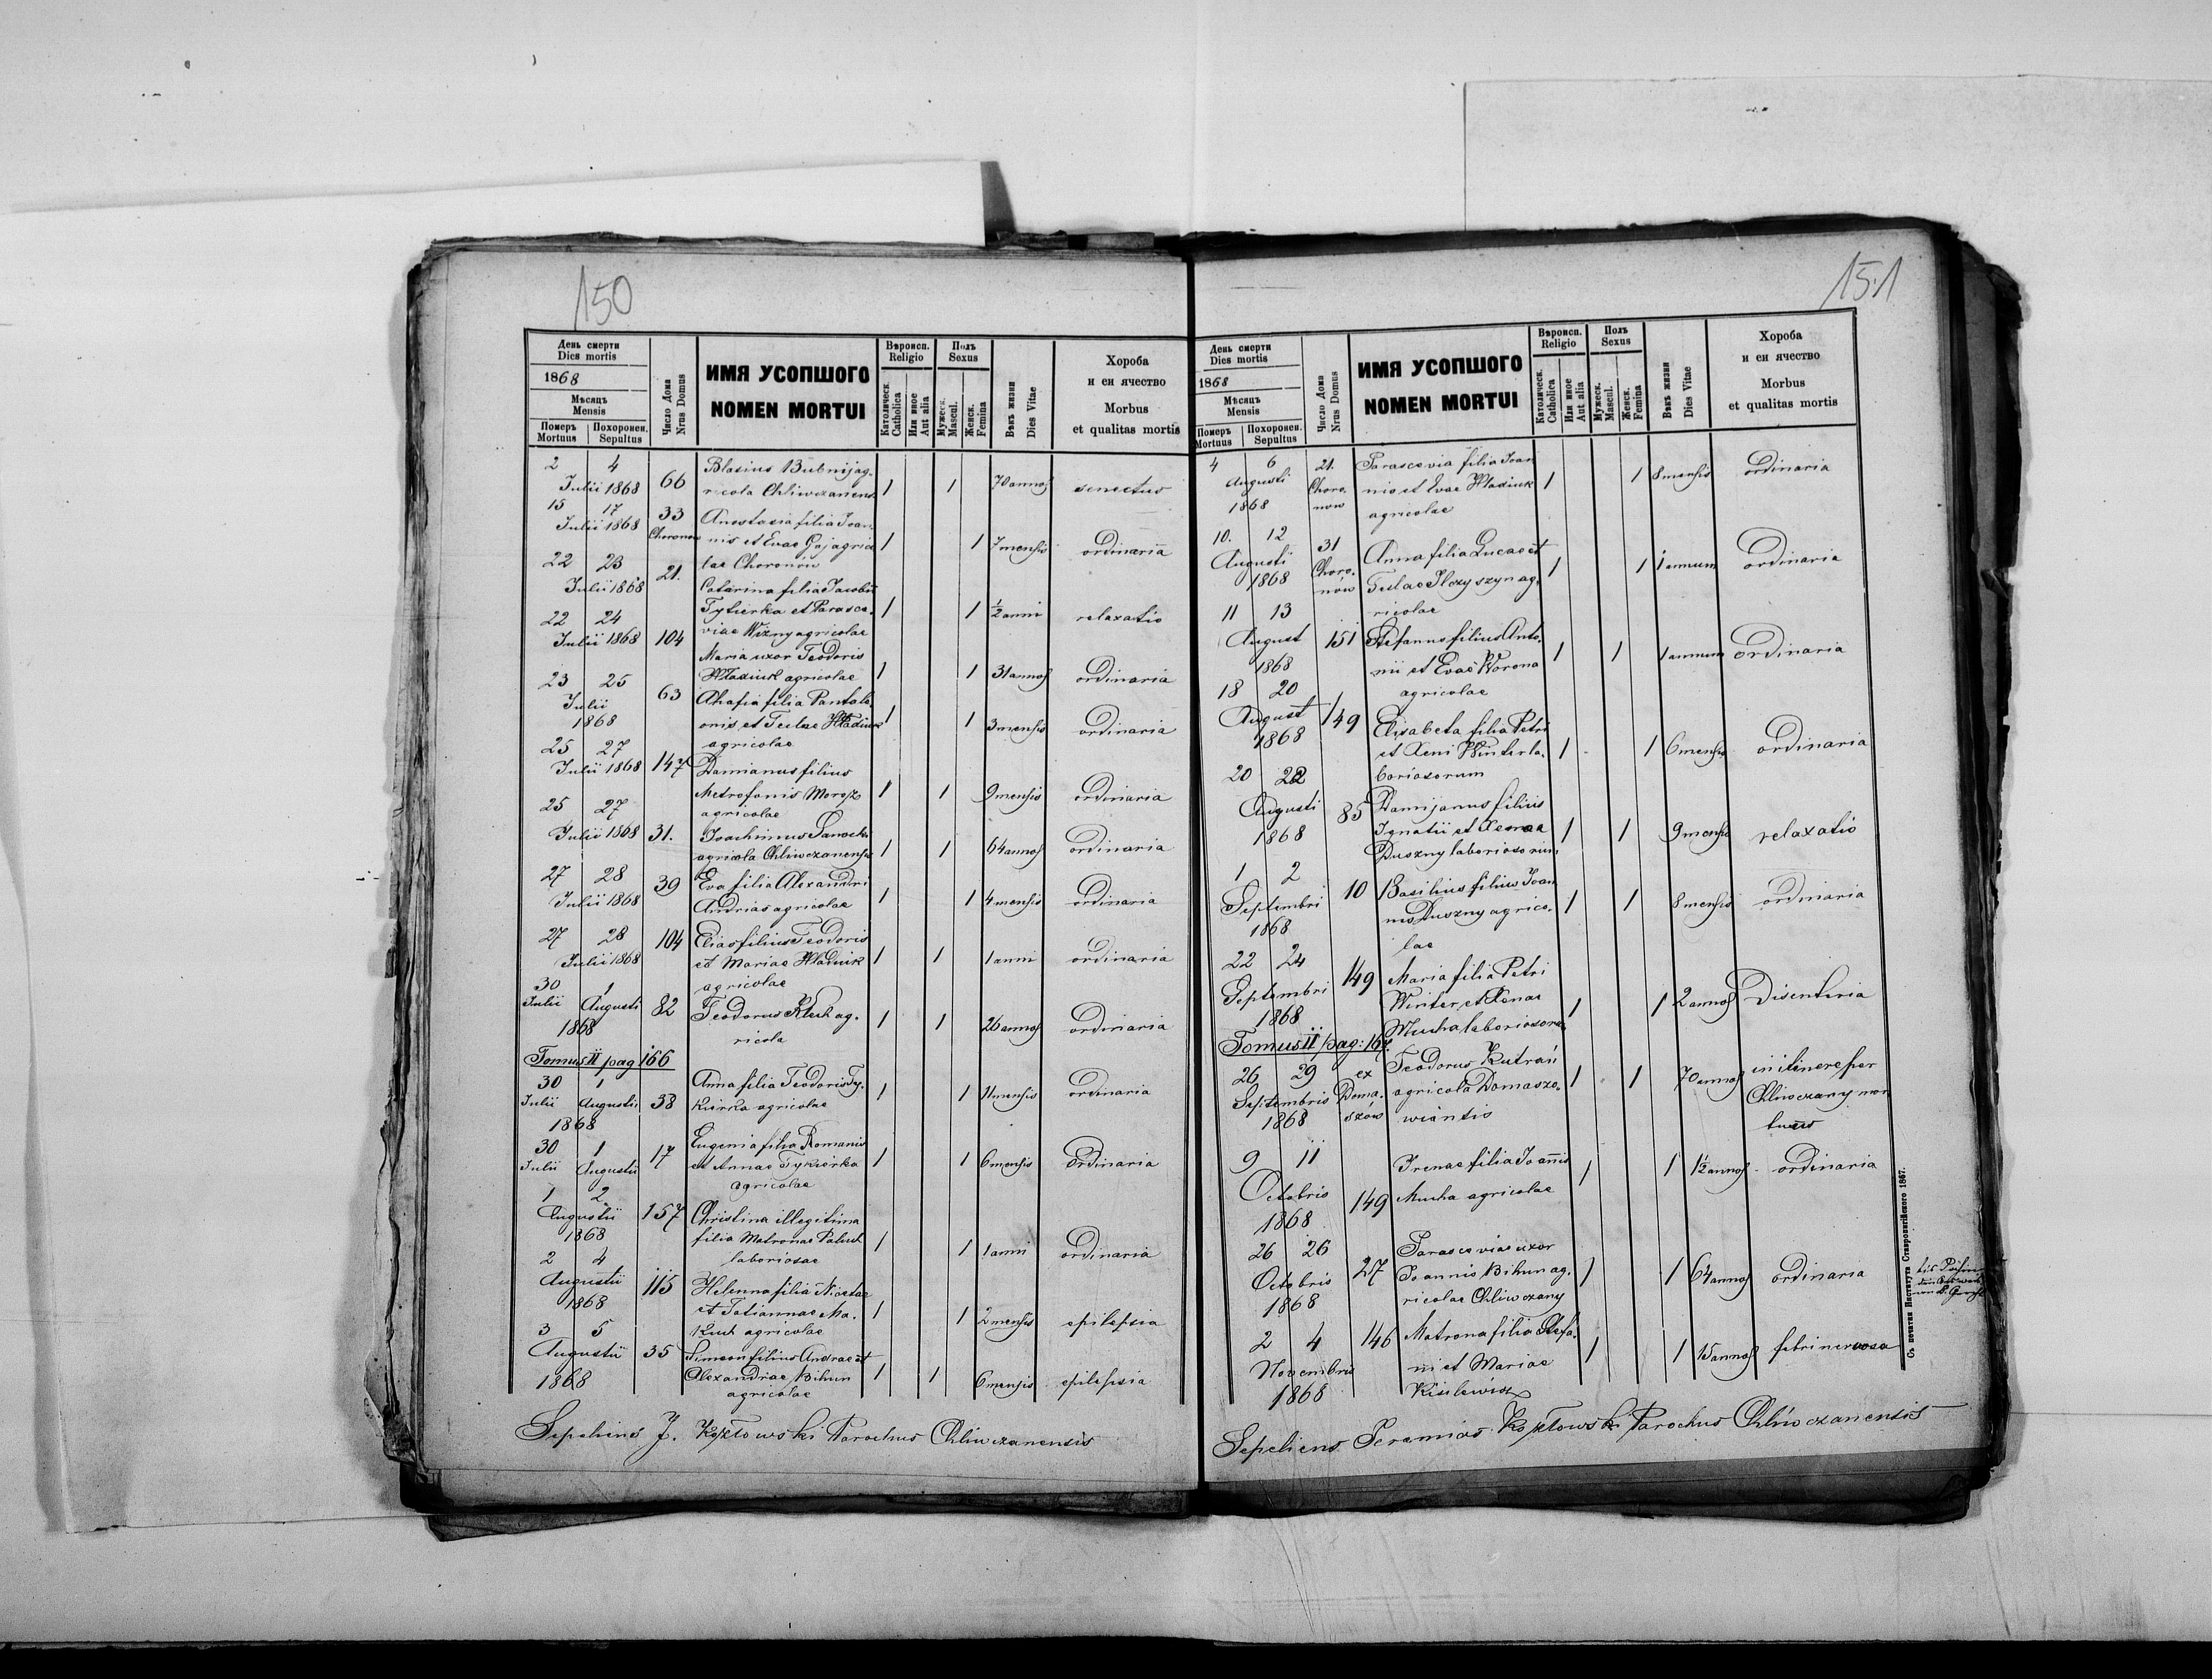 150
День смерти
Dies mortis
1868
Мѣсяцъ
Mensis
Померъ
Mortuus
Похоронен.
Sepultus
Число Дома
Nrus Domus
ИМЯ УСОПШОГО
NOMEN MORTUI
Вѣроисп.
Religio
Католическ.
Catholica
Или иное
Aut alia
Полъ
Sexus
Мужеск.
Mascul.
Женск.
Femina
Вѣкъ жизни
Dies Vitae
Хороба
и еи ячество
Morbus
et qualitas mortis
2 4 Blasius Bubnij ag-
Julii 1868 66 ricola Chliwczanens 1 1 70 annos senectus
15 17 33 Anastasia filia Joan-
Julii 1868 Choronow nis et Evae Gaj agrico 1 1 7 mensis ordinaria
lae Choronów
22 23 21. Catarina filia Jacobi
Julii 1868 et Parasce- 1 1 1/2 anni relaxatio
viae Wizny agricolae
22 24 Maria uxor Teodoris
Julii 1868 104 Hladiuk agricolae 1 1 31 annos ordinaria
23 25 63 Ahafia filia Pantale-
Julii onis et Teclae Hladiuk 1 1 3 mensis ordinaria
1868 agricolae
25 27 147 Damianus filius
Julii 1868 Metrofonis Moroz 1 1 9 mensis ordinaria
agricolae
25 27 Joachimus
Julii 1868 31. agricola Chliwczanensis 1 1 64 annos ordinaria
27 28 39 Eva filia Alexandri
Julii 1868 Andrias agricolae 1 1 4 mensis ordinaria
27 28 104 Elias filius Teodoris
Julii 1868 et Mariae Hladiuk 1 1 1 anni ordinaria
agricolae
30 1
Julii Augusti 82 Teodorus Kluk ag- 1 1 26 annos ordinaria
1868 ricola
Tomus II pag 166
30 1 Anna filia Teodoris Ty-
Julii Augustii 38 kierka agricolae 1 1 11 mensis ordinaria
1868
30 1 17 Eugenia filia Romanis
Julii Augustii et Annae Tykierka 1 1 6 mensis ordinaria
agricolae
1 2
Augustii 157 Christina illegitima
1868 filia Matronae 1 1 1 anni ordinaria
laboriosae
2 4
Augustii 115 Helenna filia Nicetae
1868 et Tatiannae Ma- 1 1 2 mensis epilepsia
kuch agricolae
3 5
Augustii 35 Simeon filius Andrae et
1868 Alexandrae Bihun 1 1 6 mensis epilepsia
agricolae
Sepeliens J. Kozłowski Parochus Chliwczanensis
151
День смерти
Dies mortis
1868
Мѣсяцъ
Mensis
Померъ
Mortuus
Похоронен.
Sepultus
Число Дома
Nrus Domus
ИМЯ УСОПШОГО
NOMEN MORTUI
Вѣроисп.
Religio
Католическ.
Catholica
Или иное
Aut alia
Полъ
Sexus
Мужеск.
Mascul.
Женск.
Femina
Вѣкъ жизни
Dies Vitae
Хороба
и еи ячество
Morbus
et qualitas mortis
4 6 21. Parascevia filia Joan
Augusti Choro- nis et Evae Hladiuk 1 1 8 mensis ordinaria
1868 now agricolae
10. 12 31 Anna filia Lucae et
Augusti Choro- Teclae Ilczyszyn ag- 1 1 1 annum ordinaria
1868 nów ricolae
11 13
August 151 Stefanus filius Anto-
1868 nii et Evae Worona 1 1 1 annum ordinaria
agricolae
18 20
August 149 Elisabeta filia Petri
1868 et Xeni Winter la- 1 1 6 mensis ordinaria
boriosorum
20 22
Augusti 85 Damijanus filius
1868 Ignatii et Xenae 1 1 9 mensis relaxatio
Duszny laboriosorum
1 2
Septembri 10 Basilius filius Joan
1868 nis Duszny agrico- 1 1 8 mensis ordinaria
lae
22 24
Septembri 149 Maria filia Petri
1868 Winter et Xenae 1 1 2 annos Disenteria
Mucha laboriosorum
Tomus II pag: 167.
26 29 ex Teodorus Kutrań
Septembris Doma- agricola Domaszo- 1 1 70 annos in itinere per
1868 szów wiäntis Chliwczany mor
tuus
9 11 Irenae filia Joannis
Octobris 149 Mucha agricolae 1 1 1 1/2 annos ordinaria
1868
26 26 Parasceviae uxor
Octobris 27 Joannis Bihun ag- 1 1 64 annos ordinaria
1868 ricolae Chliwczany
2 4 146 Matrona filia Stefa-
Novembris ni et Mariae 1 1 15 annos febri nervosa
1868 Kisilewicz
Sepeliens Jeremias Kozłowski Parochus Chliwczanensis
Съ печатни Института Ставропигійского 1867.